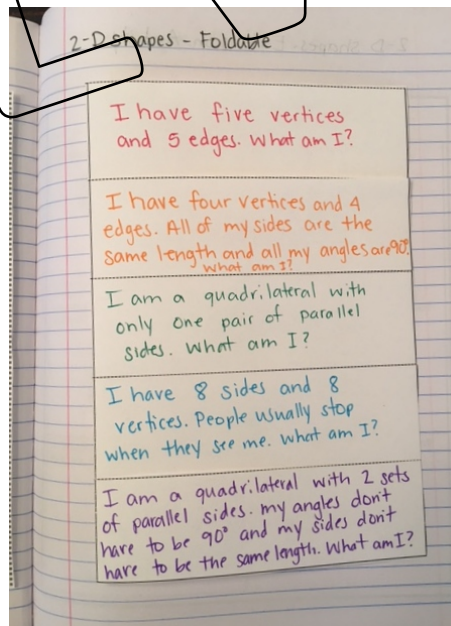 2-D shapes - Foldable
I have five vertices
and 5 edges. What am I?
I have four vertices and 4
edges. All of my sides are the
same length and all my angles are 90°.
What am I?
I am a quadrilateral with
only one pair of parallel
sides. What am I?
I have 8 sides and 8
vertices. People usually stop
when they see me. What am I?
I am a quadrilateral with 2 sets
of parallel sides. my angles don't
have to be 90° and my sides don't
have to be the same length. What am I?